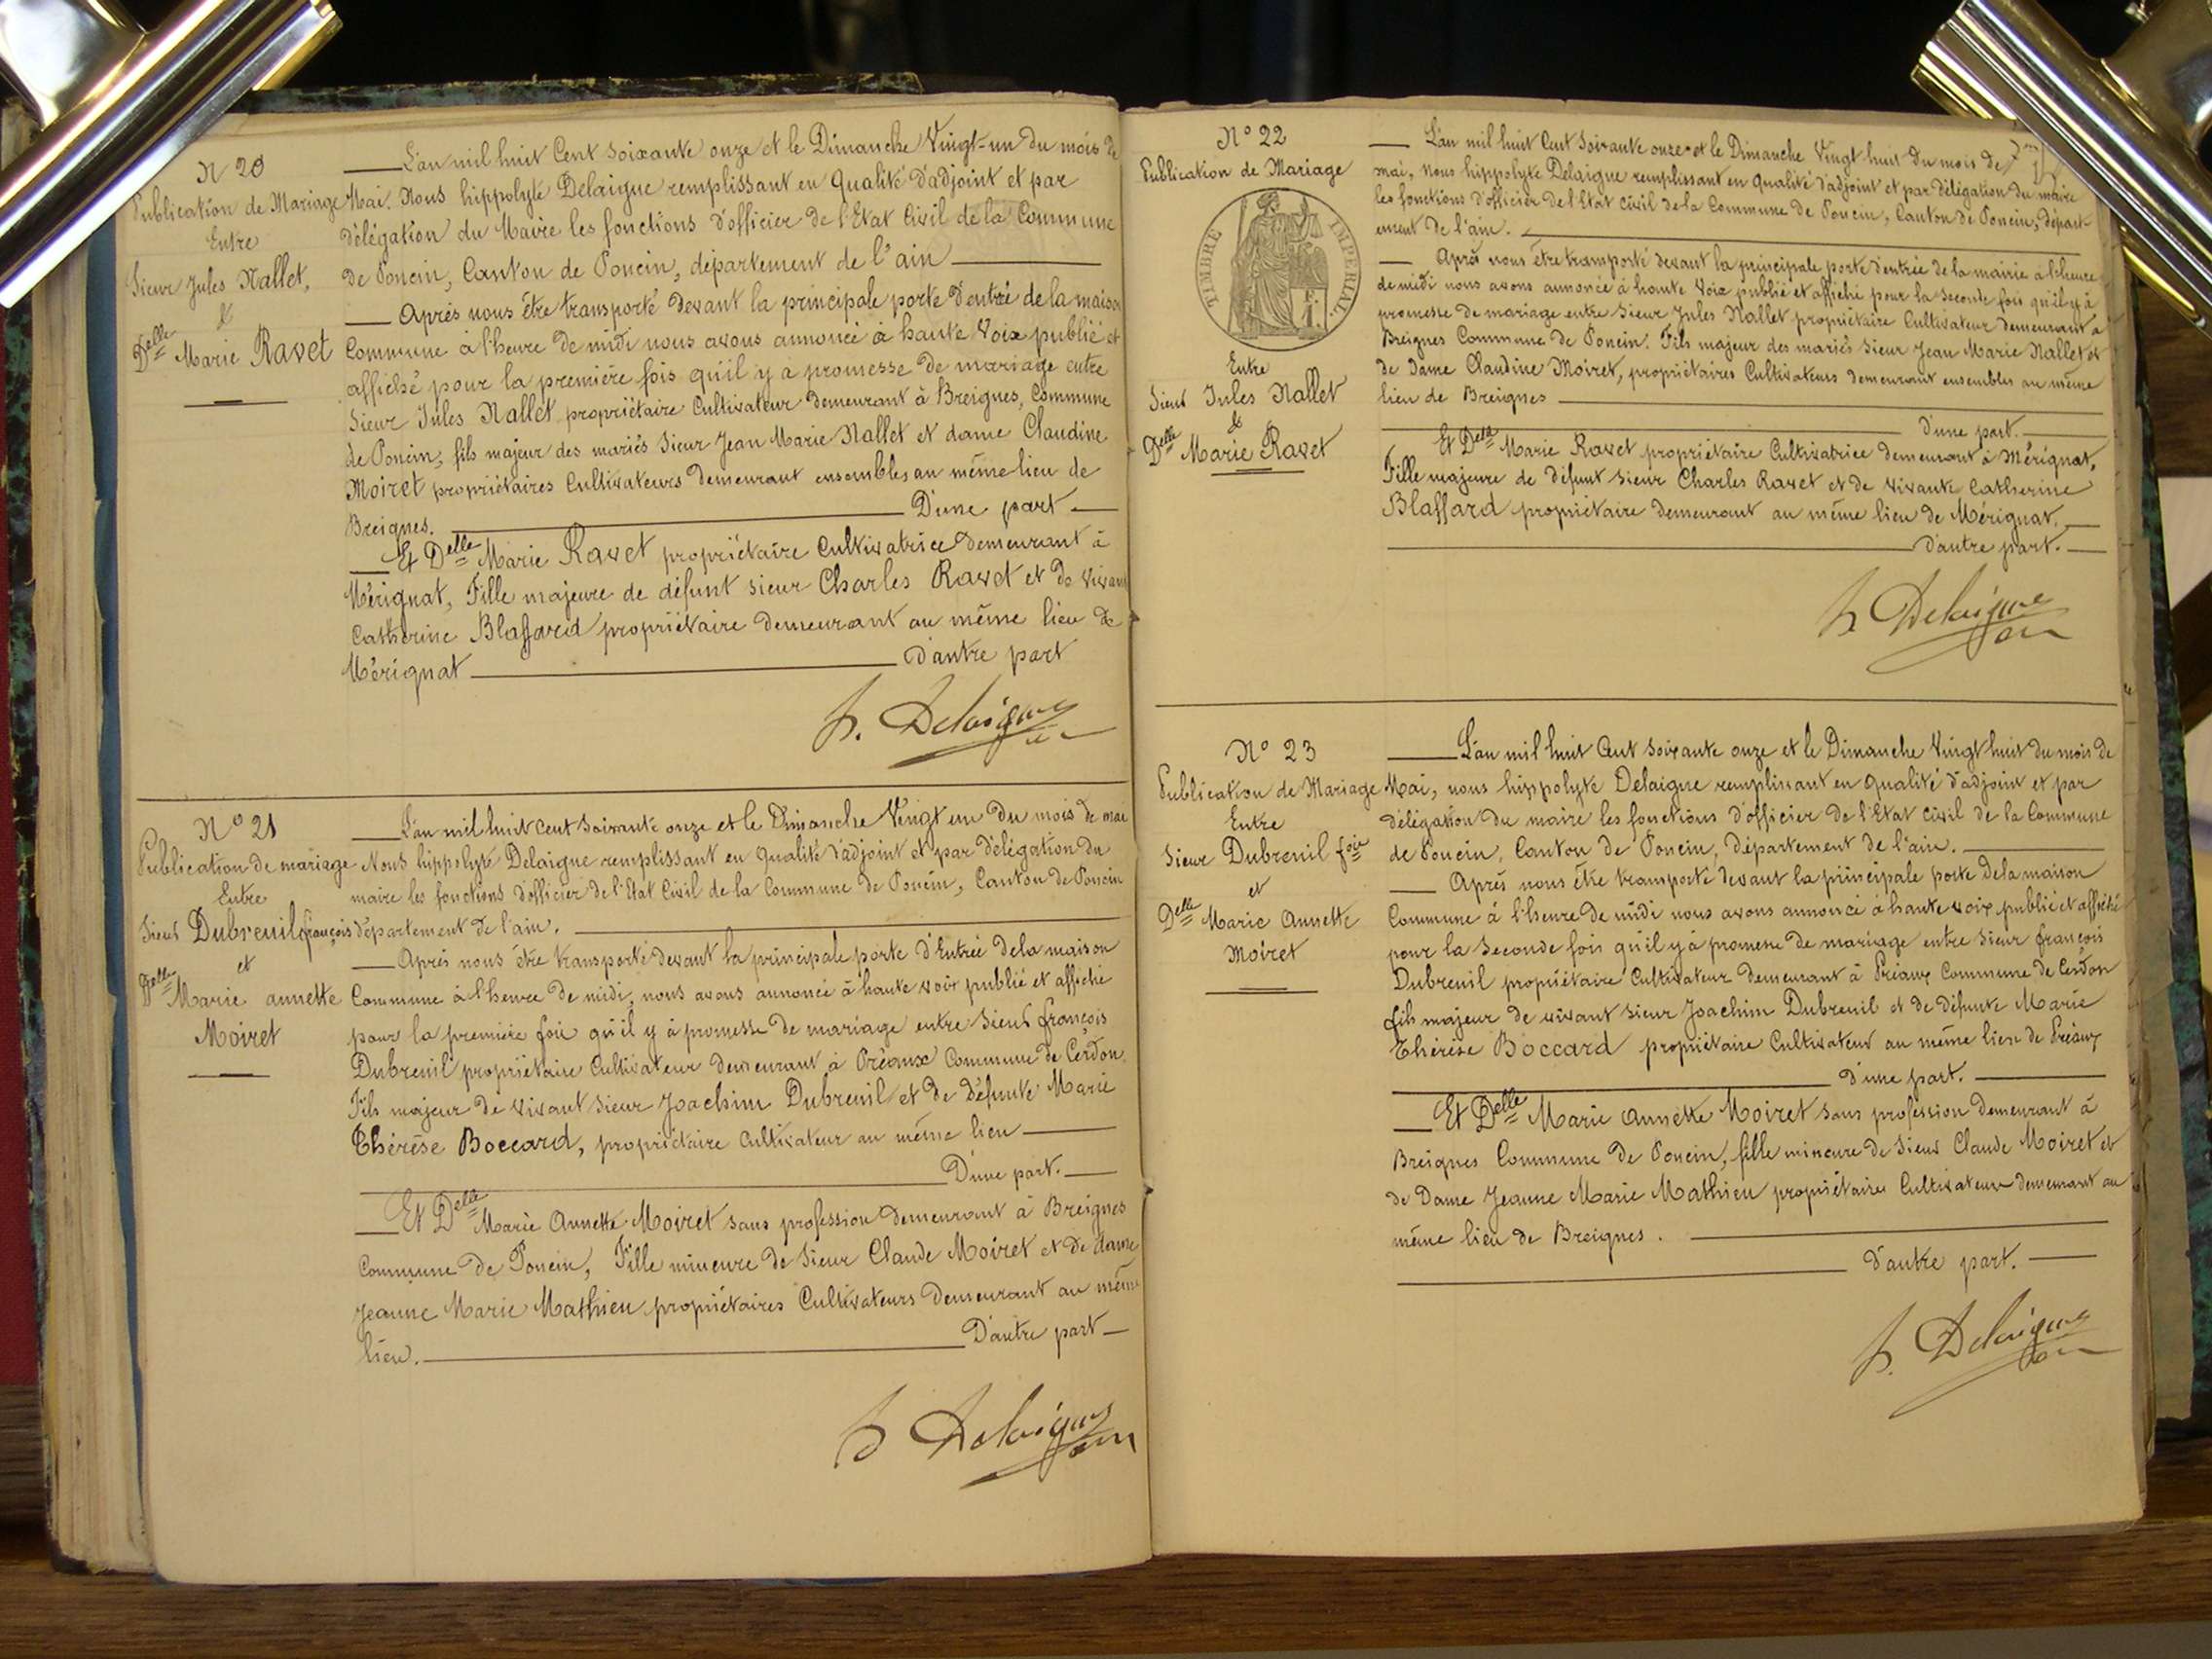 N° 20
Publication de Mariage
Entre
Sieur Jules Nallet,
&
Delle Marie Ravet
L'an mil huit Cent soixante onze et le Dimanche Vingt-un du mois de
Mai. Nous hippolyte Delaigue remplissant en qualité d'adjoint et par
délégation du Maire les fonctions d'officier de l'Etat Civil de la Commune
de Poncin, Canton de Poncin, département de l'ain
Après nous être transporté devant la principale porte d'entrée de la maison
Commune à l'heure de midi nous avons annoncé à haute Voix publié et
affiché pour la première fois qu'il y à promesse de mariage entre
Sieur Jules Nallet propriétaire Cultivateur demeurant à Breignes, Commune
de Poncin, fils majeur des mariés Sieur Jean Marie Nallet et dame Claudine
Moiret propriétaires Cultivateurs demeurant ensembles au même lieu de
Breignes. D'une part
Et Delle Marie Ravet propriétaire Cultivatrice demeurant à
Mérignat, Fille majeure de défunt sieur Charles Ravet et de vivante
Catherine Blaffard propriétaire demeurant au même lieu de
Mérignat d'autre part
h. Delaigue
N° 21
Publication de mariage
Entre
Sieur Dubreuil françois
et
Delle Marie annette
Moiret
L'an mil huit cent soixante onze et le Dimanche Vingt un du mois de mai
Nous hippolyte Delaigue remplissant en qualité d'adjoint et par délégation du
maire les fonctions d'officier de l'Etat Civil de la Commune de Poncin, Canton de Poncin
département de l'ain.
Après nous être transporté devant la principale porte d'Entrée de la maison
Commune à l'heure de midi, nous avons annoncé à haute voix publié et affiché
pour la première fois qu'il y à promesse de mariage entre Sieur françois
Dubreuil propriétaire Cultivateur demeurant à Préaux Commune de Cerdon.
Fils majeur de vivant sieur Joachim Dubreuil et de défunte Marie
Thérèse Boccard, propriétaire Cultivateur au même lieu
D'une part.
Et Delle Marie Annette Moiret sans profession demeurant à Breignes
Commune de Poncin, Fille mineure de Sieur Claude Moiret et de dame
Jeanne Marie Mathieu propriétaires Cultivateurs demeurant au même
lieu. D'autre part
h Delaigue
N° 22
Publication de Mariage
TIMBRE IMPERIAL
Entre
Sieur Jules Nallet
&
Delle Marie Ravet
L'an mil huit Cent soixante onze et le Dimanche Vingt huit du mois de
mai, Nous hippolyte Delaigue remplissant en qualité d'adjoint et par délégation du maire
les fonctions d'officier de l'Etat Civil de la Commune de Poncin, Canton de Poncin, départ-
ement de l'ain.
Après nous être transporté devant la principale porte d'entrée de la mairie à l'heure
de midi nous avons annoncé à haute Voix publié et affiché pour la seconde fois qu'il y à
promesse de mariage entre Sieur Jules Nallet propriétaire Cultivateur demeurant à
Breignes Commune de Poncin. Fils majeur des mariés Sieur Jean Marie Nallet et
de Dame Claudine Moiret, propriétaires Cultivateurs demeurant ensembles au même
lieu de Breignes
D'une part.
Et Delle Marie Ravet propriétaire Cultivatrice demeurant à Mérignat,
Fille majeure de défunt Sieur Charles Ravet et de vivante Catherine
Blaffard propriétaire demeurant au même lieu de Mérignat.
d'autre part.
h. Delaigue
N° 23
Publication de Mariage
Entre
Sieur Dubreuil fois
et
Delle Marie Annette
Moiret
L'an mil huit Cent soixante onze et le Dimanche Vingt huit du mois de
Mai, nous hippolyte Delaigue remplissant en qualité d'adjoint et par
délégation du maire les fonctions d'officier de l'Etat civil de la Commune
de Poncin, Canton de Poncin, département de l'ain.
Après nous être transporté devant la principale porte de la maison
Commune à l'heure de midi nous avons annoncé à haute voix publié et affiché
pour la seconde fois qu'il y à promesse de mariage entre Sieur françois
Dubreuil propriétaire Cultivateur demeurant à Préaux Commune de Cerdon
fils majeur de vivant sieur Joachim Dubreuil et de défunte Marie
Thérèse Boccard propriétaire Cultivateur au même lieu de Préaux
d'une part.
Et Delle Marie Annette Moiret sans profession demeurant à
Breignes Commune de Poncin, fille mineure de Sieur Claude Moiret et
de Dame Jeanne Marie Mathieu propriétaires Cultivateurs demeurant au
même lieu de Breignes.
d'autre part.
h. Delaigue